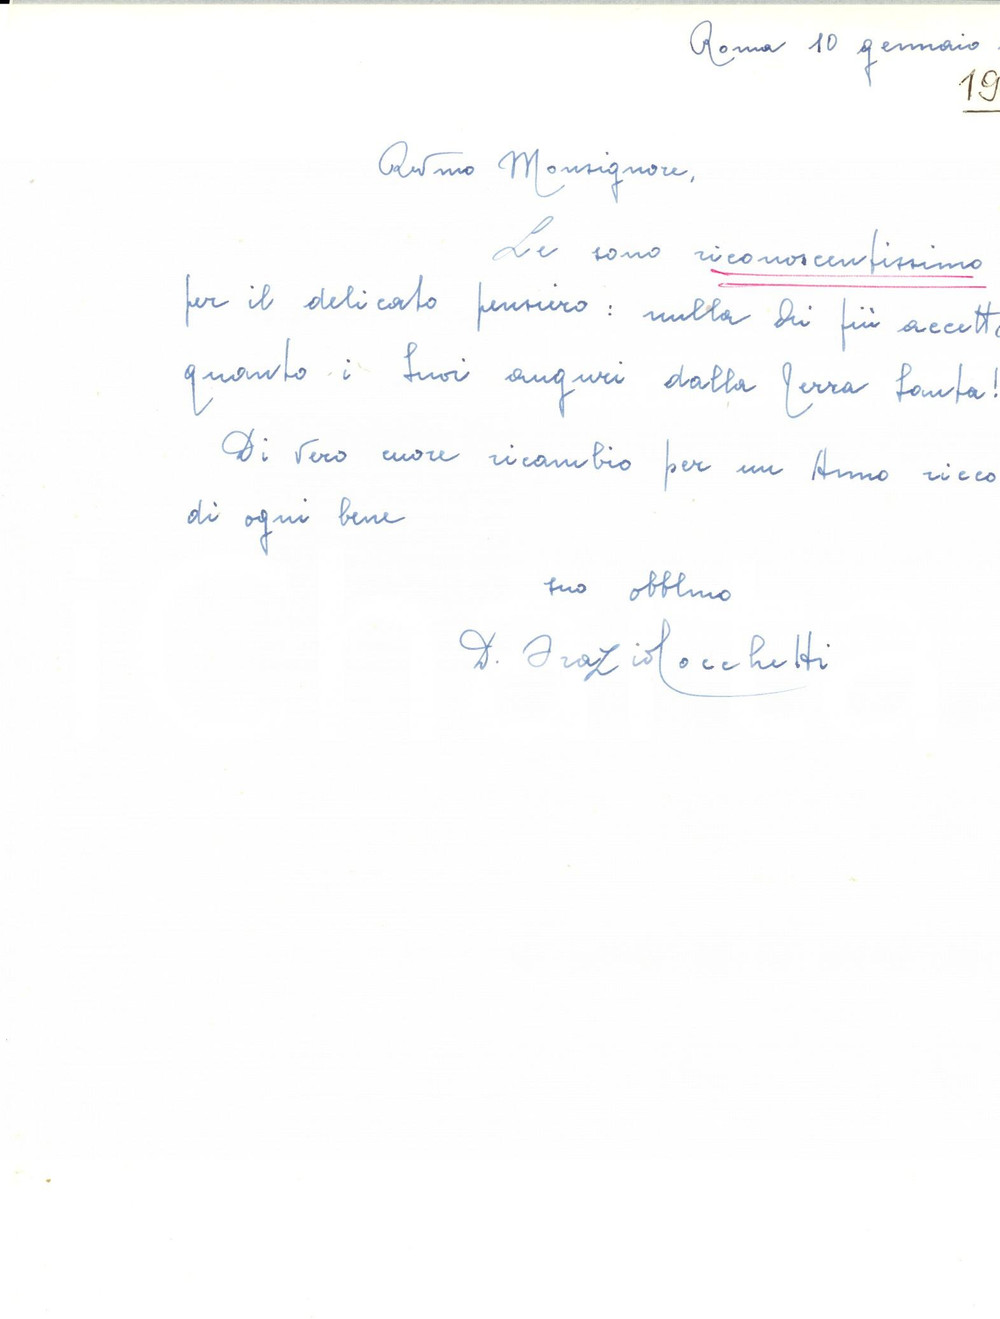 Roma 10 gennaio
19
Revmo Monsignore,
Le sono riconoscentissimo
per il delicato pensiero: nulla di più accetto
quanto i Suoi auguri dalla Terra Santa!
Di vero cuore ricambio per un Anno ricco
di ogni bene
suo obblmo
D. Orazio Cocchetti